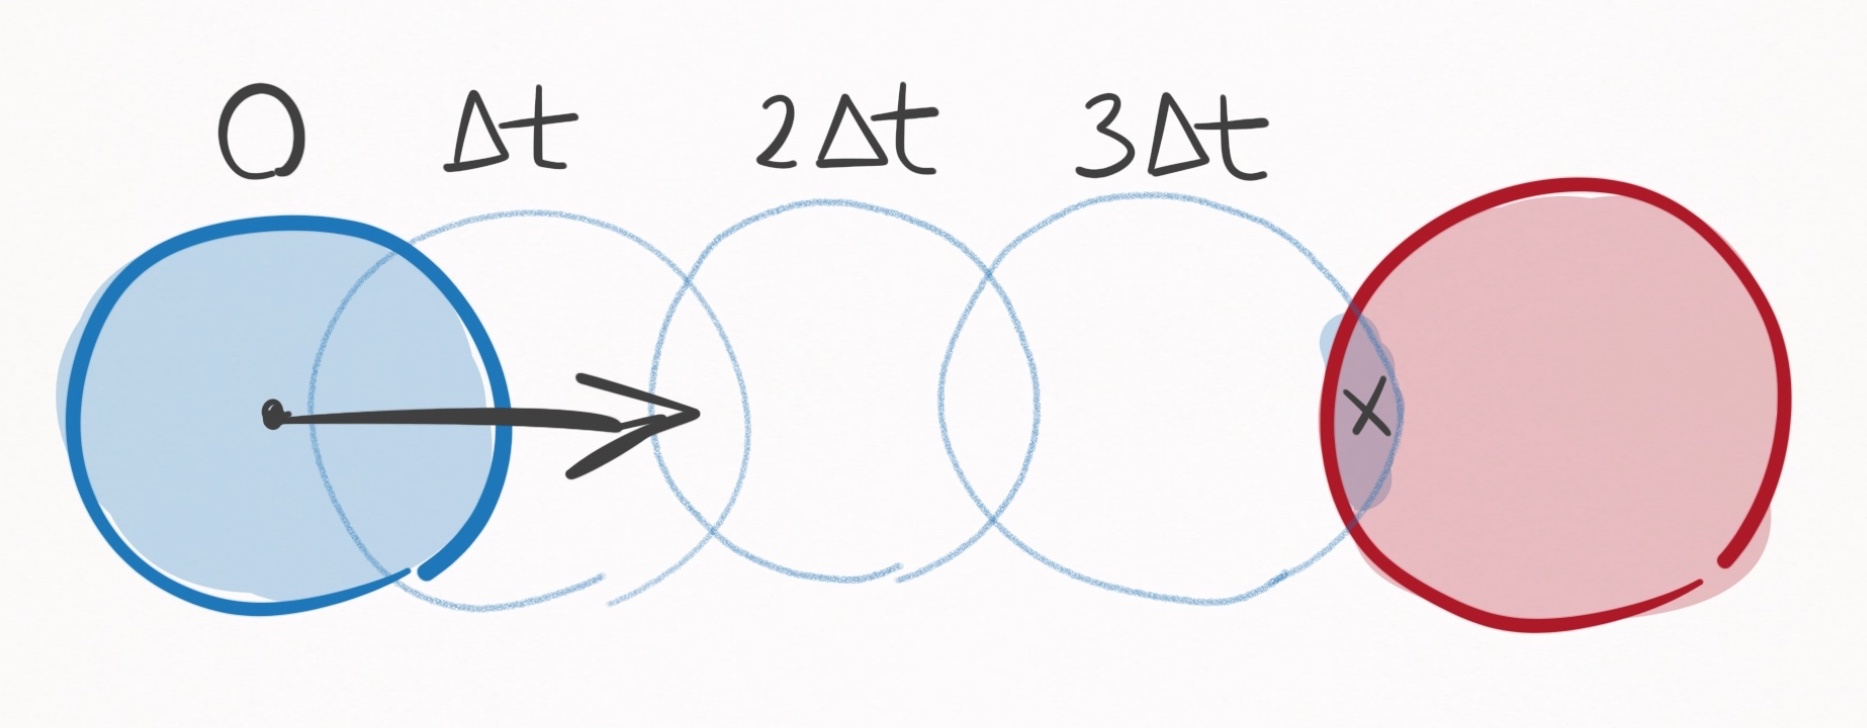 0 Δt 2Δt 3Δt
x